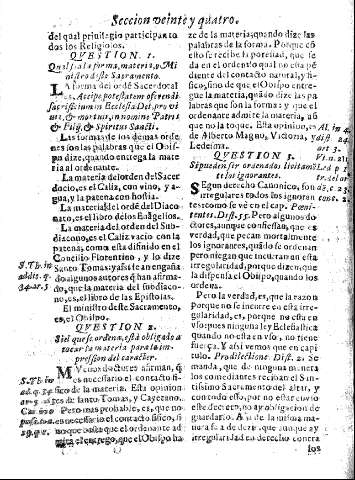 Seccion veinte y quatro.
del qual priuilegio participan to
dos los Religiosos.
QVESTION. 1.
Qual sea la forma, materia, y Mi
nistro deste Sacramento.
LA forma del ordē Sacerdotal
es. Accipe potestatem offerendi
sacrificium in Ecclesia Dei, pro viui
s, & mortuis, in nomine Patris
& Filij, & Spiritus Sancti.
Las formas de los demas orde
nes son las palabras que el Obis
po dize, quando entrega la materia
al ordenante.
La materia del orden del Sacer
docio, es el Caliz, con vino, y a-
gua, y la patena con hostia.
La materia del orden del Diaco
nato, es el libro de los Euāgelios.
La materia del orden del Sub-
diacono, es el Caliz vacio con la
patena, como esta difinido en el
Concilio Florentino, y lo dize
Santo Tomas: y assi se an engaña
do algunos autores q̄ han afirma-
do, que la materia del subdiaco-
no, es el libro de las Epistolas.
El ministro deste Sacramento,
es, el Obispo.
QVESTION 2.
Si el que se ordena, està obligado a
tocar la materia para la im-
pression del caracter.
MVchos doctores afirman, q̄
es necessario el contacto fi-
sico de la materia. Esta opinion
es de Santo Tomas, y Cayetano.
Pero mas probable, es, que no
es necessario el contacto fisico, si
no que busca que el ordenante ad
mita el entrego, que el Obispo ha
S. Th. in
addit. q.
34. ar. 5
S. Th. vbi
ze de la materia, quando dize las
palabras de la forma: Porque cō
esto se recibe la potestad, que se
da en el orden: lo qual no esta pē
diente del contacto natural, y fi-
sico, sino de que el Obispo entre-
gue la materia, quādo dize las pa
labras que son la forma: y que el
ordenante admite la materia, aū
que no la toque. Esta opinion, es
de Alberto Magno, Victoria, y
Ledesma.
QVESTION 3.
Si pueden ser ordenados licitamēte
los ignorantes.
SEgun derecho Canonico, son
irregulares todos los ignoran
tes: como se vè en el cap. Peni-
tentes. Dist. 55. Pero algunos do-
tores, aunque confiessan, que es
verdad, que pecan mortalmente
los ignorantes, quādo se ordenan
pero niegan que incurran en esta
irregularidad, porque dizen que
la dispensa el Obispo, quando los
ordena.
Pero la verdad, es, que la razon
porque no se incurre en esta irre-
gularidad, es, porque no esta en
vso: pues ninguna ley Eclesiastica
quando no esta en vso, no tiene
fuerça. Y assi vemos que en el capi
tulo. Pro dilectione. Dist. 2. Se
manda, que de ninguna manera
los comediantes reciban el San-
tissimo Sacramento del altar, y
con todo esso, por no estar en vso
este decreto, no ay obligacion de
guardarlo. Assi de la misma ma
nera sea de dezir, que aunque ay
irregularidad en derecho contra
los